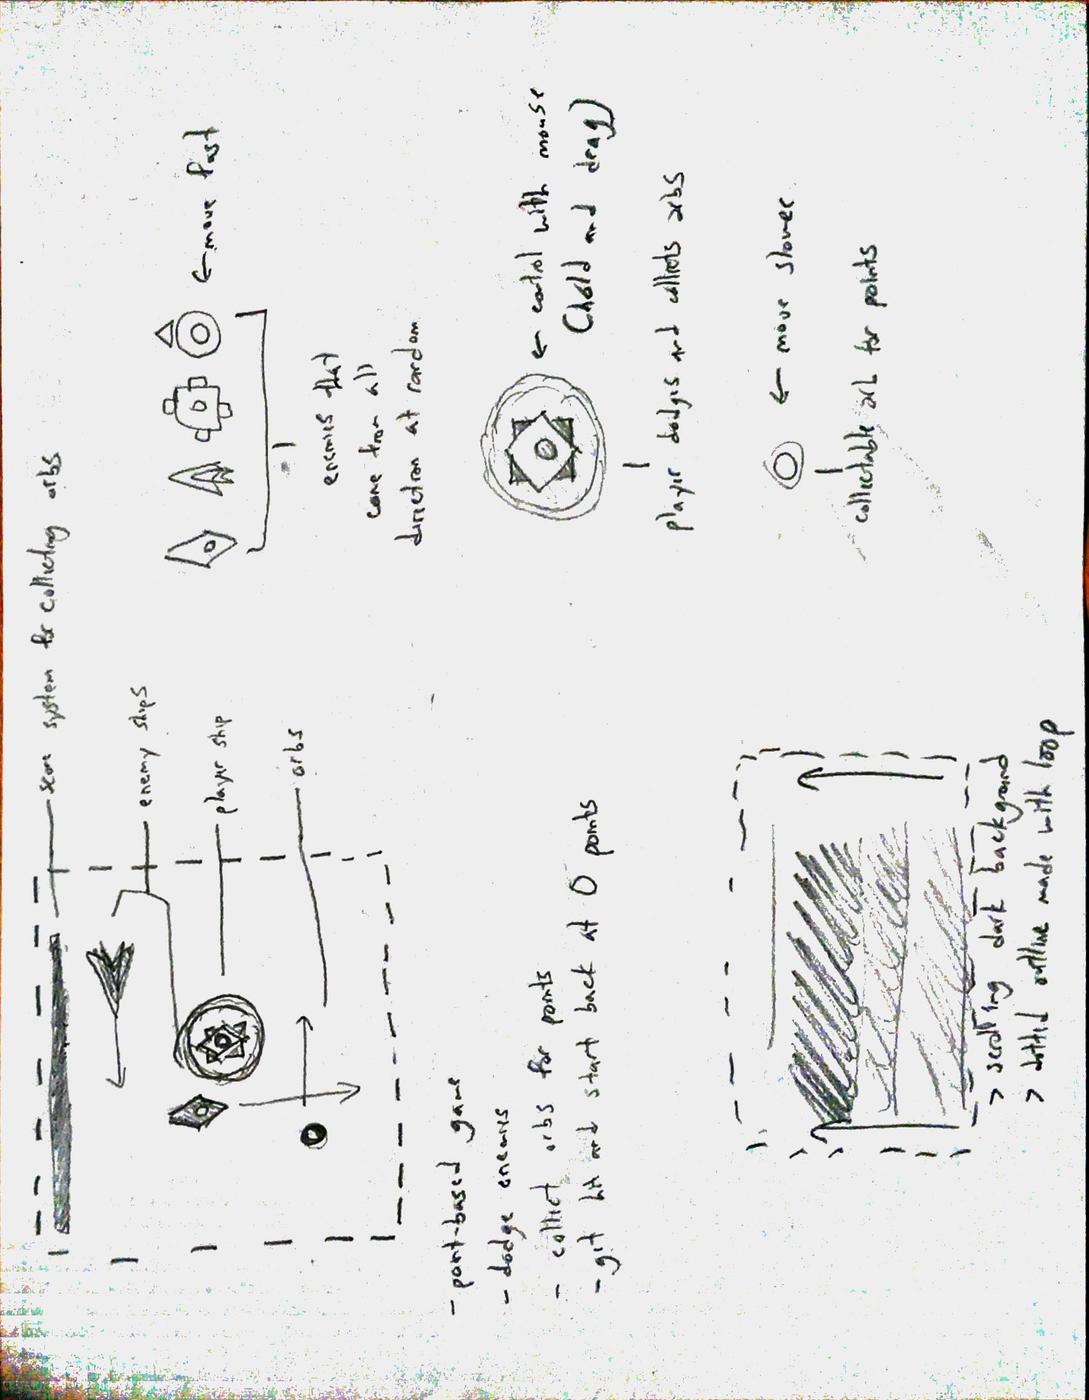 score system for collecting orbs
enemy ships
player ship
orbs
- point-based game
- dodge enemies
- collect orbs for points
- get hit and start back at 0 points
← move fast
enemies that
come from all
direction at random
← control with mouse
(hold and drag)
player dodges and collects orbs
← move slower
collectable orb for points
> scrolling dark background
> dotted outline made with loop